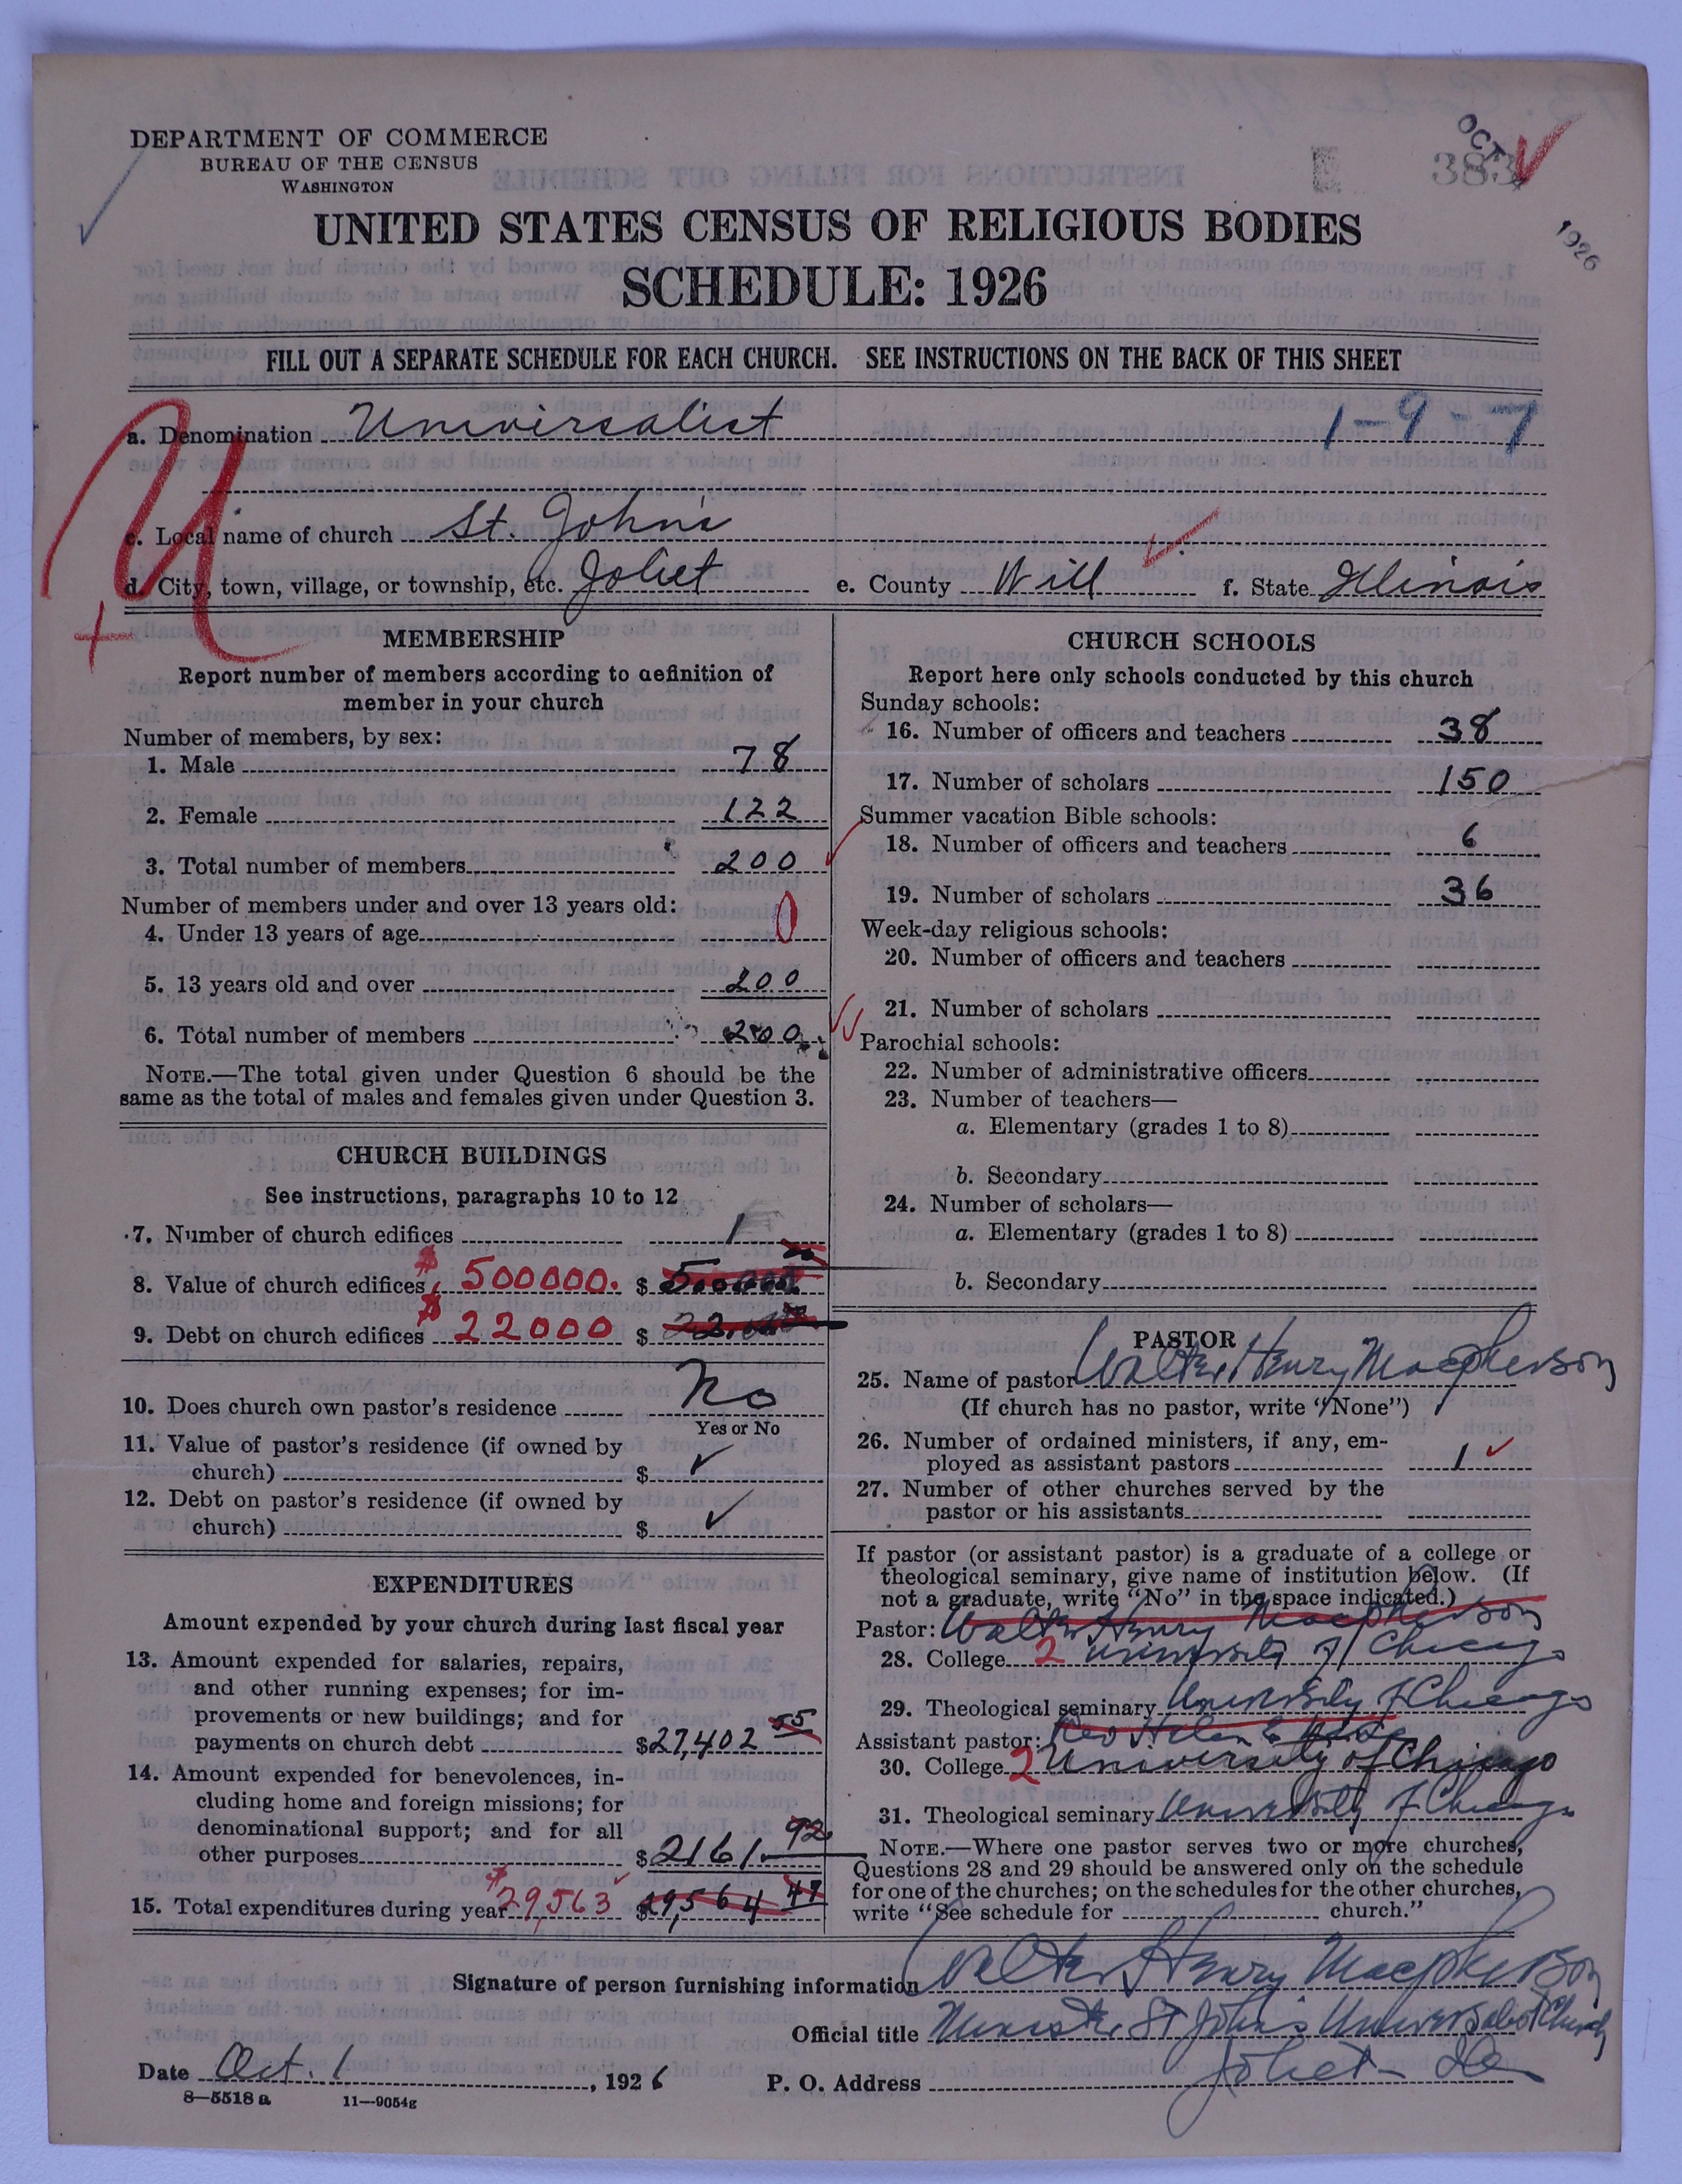 DEPARTMENT OF COMMERCE
BUREAU OF THE CENSUS
WASHINGTON
OCT
383
1926
UNITED STATES CENSUS OF RELIGIOUS BODIES
SCHEDULE: 1926
FILL OUT A SEPARATE SCHEDULE FOR EACH CHURCH. SEE INSTRUCTIONS ON THE BACK OF THIS SHEET
a. Denomination Universalist 1-9-7
U
c. Local name of church St. John's
d. City, town, village, or township, etc. Joliet e. County Will f. State Illinois
+
MEMBERSHIP
Report number of members according to definition of
member in your church
Number of members, by sex:
1. Male 78
2. Female 122
3. Total number of members 200
Number of members under and over 13 years old:
4. Under 13 years of age 0
5. 13 years old and over 200
6. Total number of members 200
NOTE.—The total given under Question 6 should be the
same as the total of males and females given under Question 3.
CHURCH BUILDINGS
See instructions, paragraphs 10 to 12
7. Number of church edifices 1
8. Value of church edifices $ 500000. $
9. Debt on church edifices $ 22000 $
10. Does church own pastor's residence No
Yes or No
11. Value of pastor's residence (if owned by
church) $ ✓
12. Debt on pastor's residence (if owned by
church) $ ✓
EXPENDITURES
Amount expended by your church during last fiscal year
13. Amount expended for salaries, repairs,
and other running expenses; for im-
provements or new buildings; and for
payments on church debt $27,402 55
14. Amount expended for benevolences, in-
cluding home and foreign missions; for
denominational support; and for all
other purposes $2161. 92
15. Total expenditures during year $29,563 $29,564 47
CHURCH SCHOOLS
Report here only schools conducted by this church
Sunday schools:
16. Number of officers and teachers 38
17. Number of scholars 150
Summer vacation Bible schools:
18. Number of officers and teachers 6
19. Number of scholars 36
Week-day religious schools:
20. Number of officers and teachers
21. Number of scholars
Parochial schools:
22. Number of administrative officers
23. Number of teachers—
a. Elementary (grades 1 to 8)
b. Secondary
24. Number of scholars—
a. Elementary (grades 1 to 8)
b. Secondary
PASTOR
25. Name of pastor Walter Henry Macpherson
(If church has no pastor, write "None")
26. Number of ordained ministers, if any, em-
ployed as assistant pastors 1 ✓
27. Number of other churches served by the
pastor or his assistants
If pastor (or assistant pastor) is a graduate of a college or
theological seminary, give name of institution below. (If
not a graduate, write "No" in the space indicated.)
Pastor: Walter Henry Macpherson
28. College 2 University of Chicago
29. Theological seminary University of Chicago
Assistant pastor: Rev Helen
30. College 2 University of Chicago
31. Theological seminary University of Chicago
NOTE.—Where one pastor serves two or more churches,
Questions 28 and 29 should be answered only on the schedule
for one of the churches; on the schedules for the other churches,
write "See schedule for church."
Signature of person furnishing information Walter Henry Macpherson
Official title Minister St John's Universalist Church
Date Oct. 1, 1926 P. O. Address Joliet Ill
8—5518 a 11—9054g